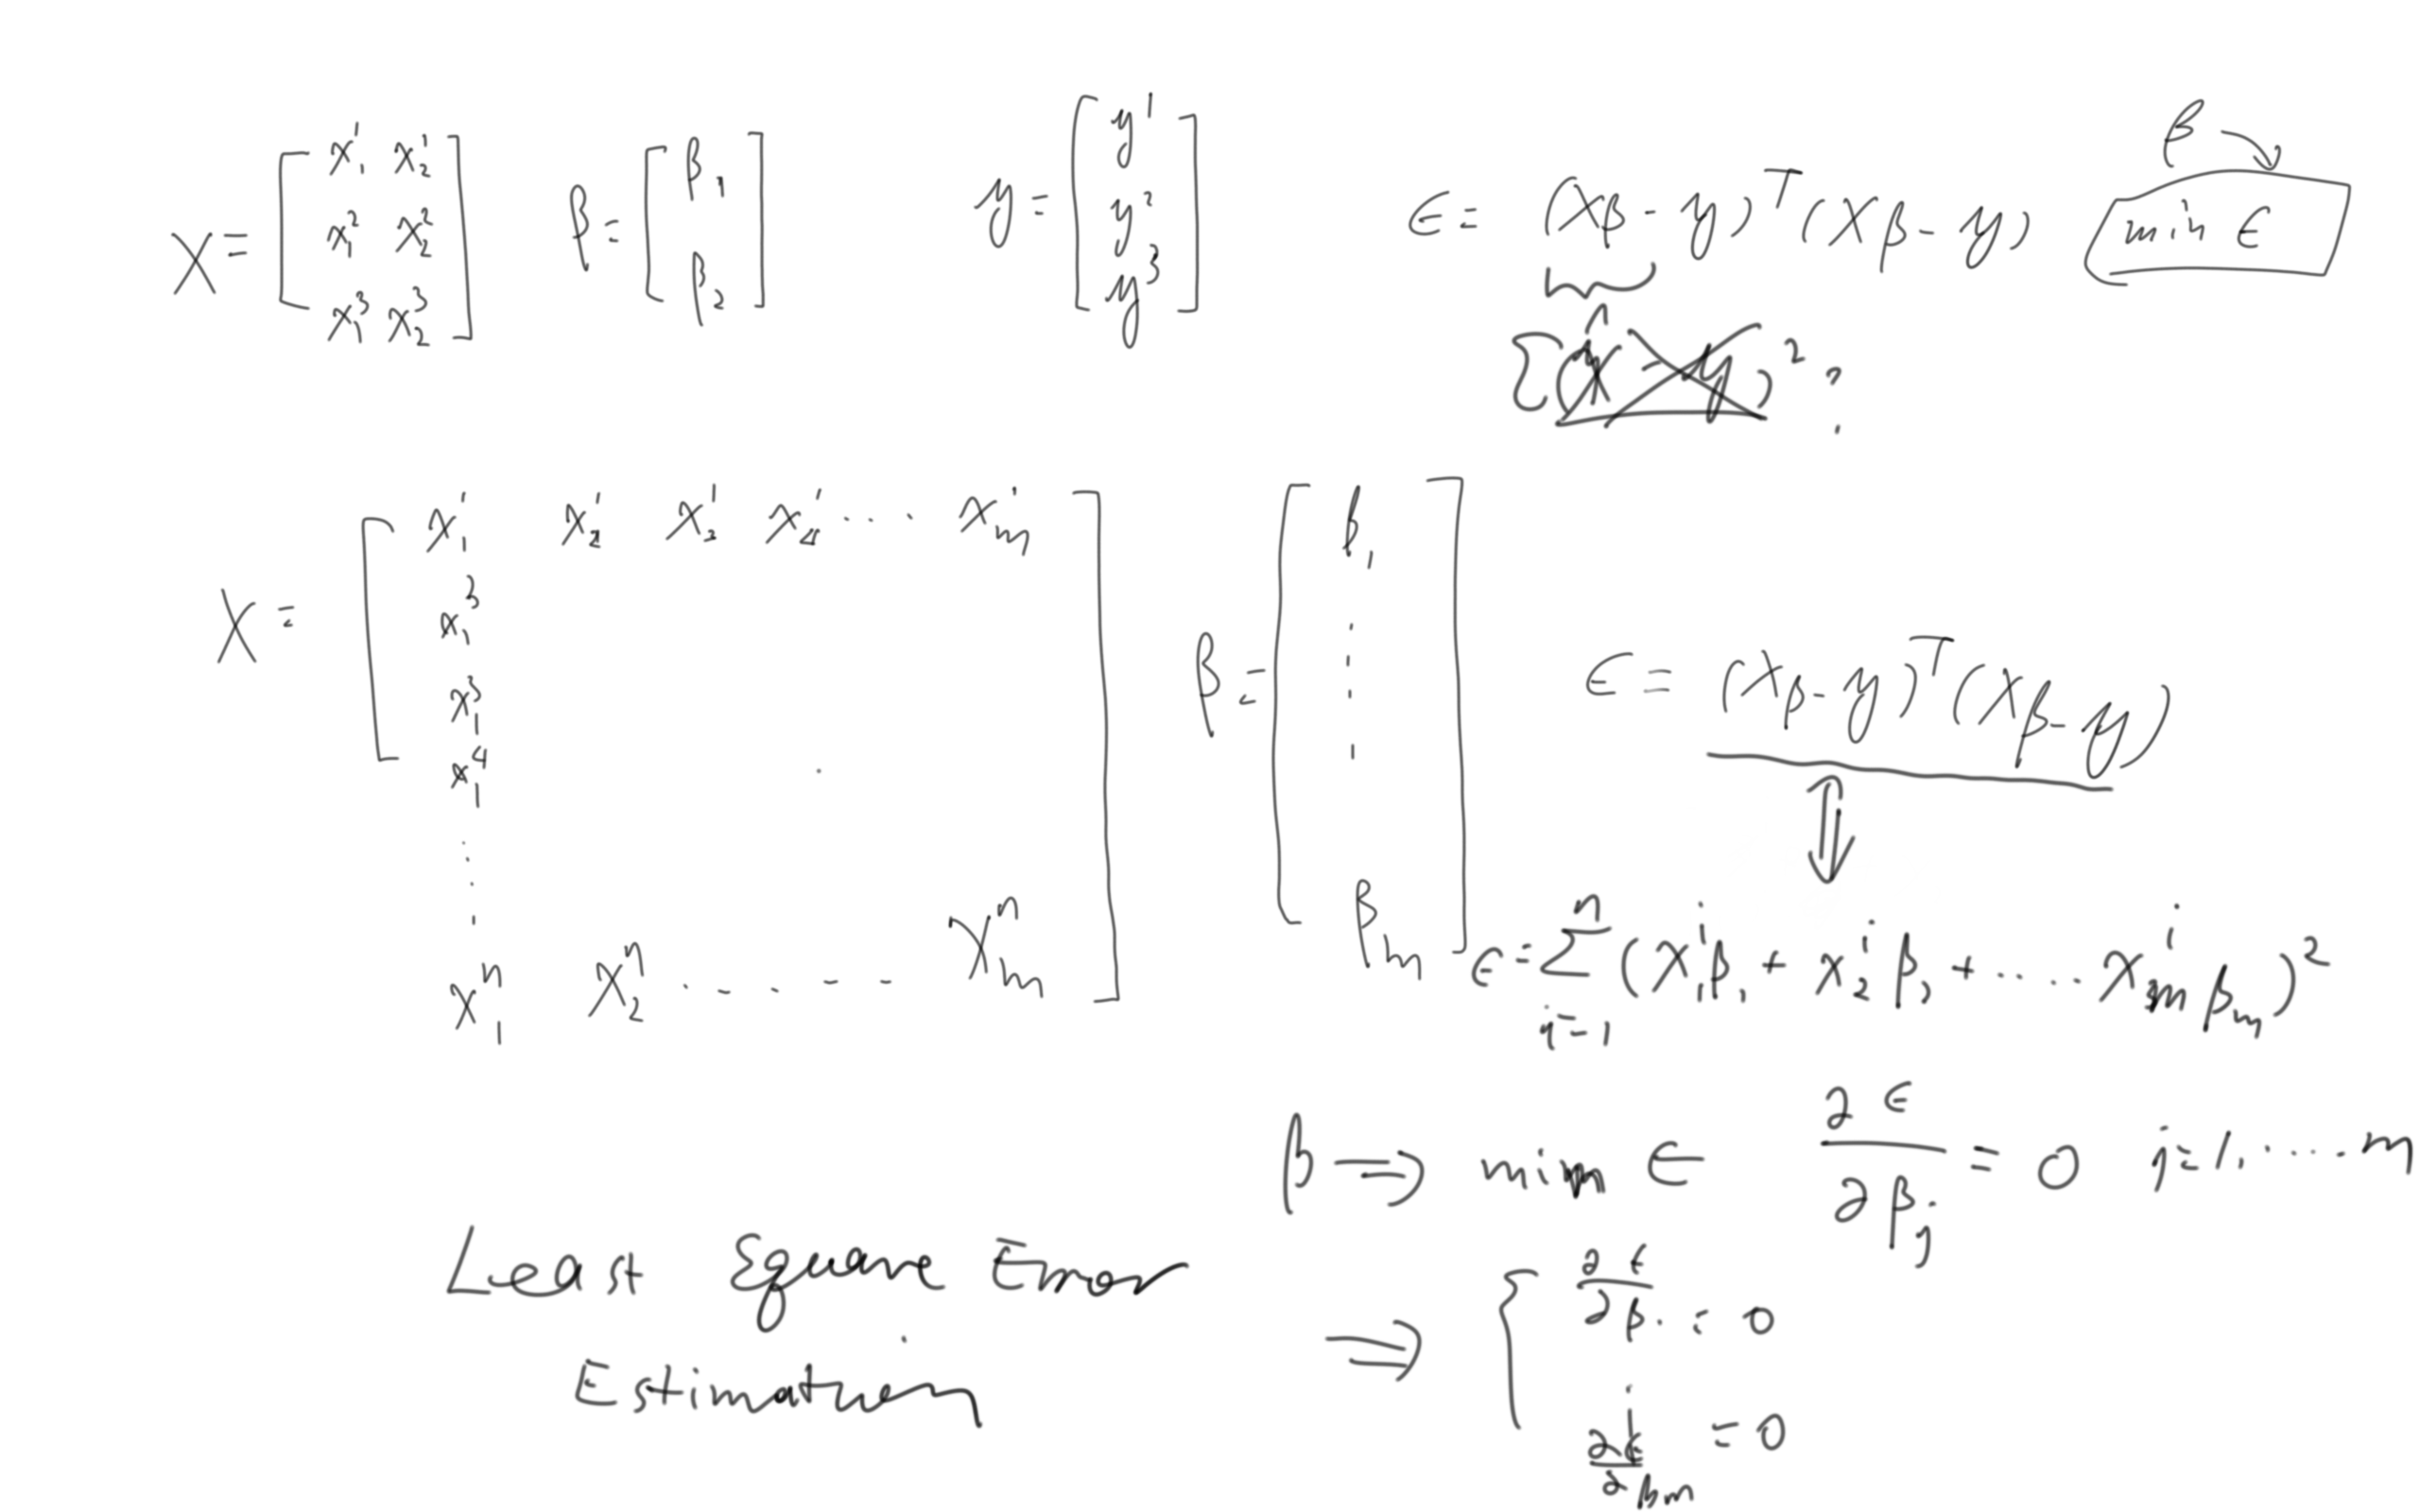 X = [ x₁¹ x₂¹ ; x₁² x₂² ; x₁³ x₂³ ]
β = [ β₁ ; β₂ ]
y = [ y¹ ; y² ; y³ ]
ϵ = (Xβ - y)ᵀ(Xβ - y)
β
min ϵ
Σ(ŷ - y)² ?
X = [ x₁¹ x₂¹ x₃¹ x₄¹ ... xₘ¹ ; x₁² ; x₁³ ; x₁⁴ ; ... ; x₁ⁿ x₂ⁿ ..... xₘⁿ ]
β = [ β₁ ; ... ; βₘ ]
ϵ = (Xβ - y)ᵀ(Xβ - y)
⇕
ϵ = Σᵢ₌₁ⁿ (x₁ⁱβ₁ + x₂ⁱβ₂ + .... xₘⁱβₘ)²
β ⇒ min ϵ ∂ϵ/∂βⱼ = 0 j=1, .... m
⇒ { ∂ϵ/∂β₁ = 0
⋮
∂ϵ/∂βₘ = 0
Least Square Error
Estimation